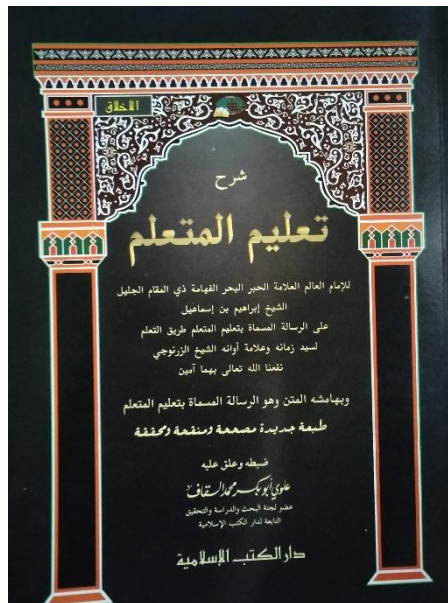 الاخلاق
شرح
تعليم المتعلم
للإمام العالم العلامة الحبر البحر الفهامة ذي المقام الجليل
الشيخ إبراهيم بن إسماعيل
على الرسالة المسماة بتعليم المتعلم طريق التعلم
لسيد زمانه وعلامة أوانه الشيخ الزرنوجي
نفعنا الله تعالى بهما آمين
وبهامشه المتن وهو الرسالة المسماة بتعليم المتعلم
طبعة جديدة مصححة ومنقحة ومحققة
ضبطه وعلق عليه
علوي أبو بكر محمد السقاف
عضو لجنة البحث والدراسة والتحقيق
التابعة لدار الكتب الإسلامية
دار الكتب الإسلامية